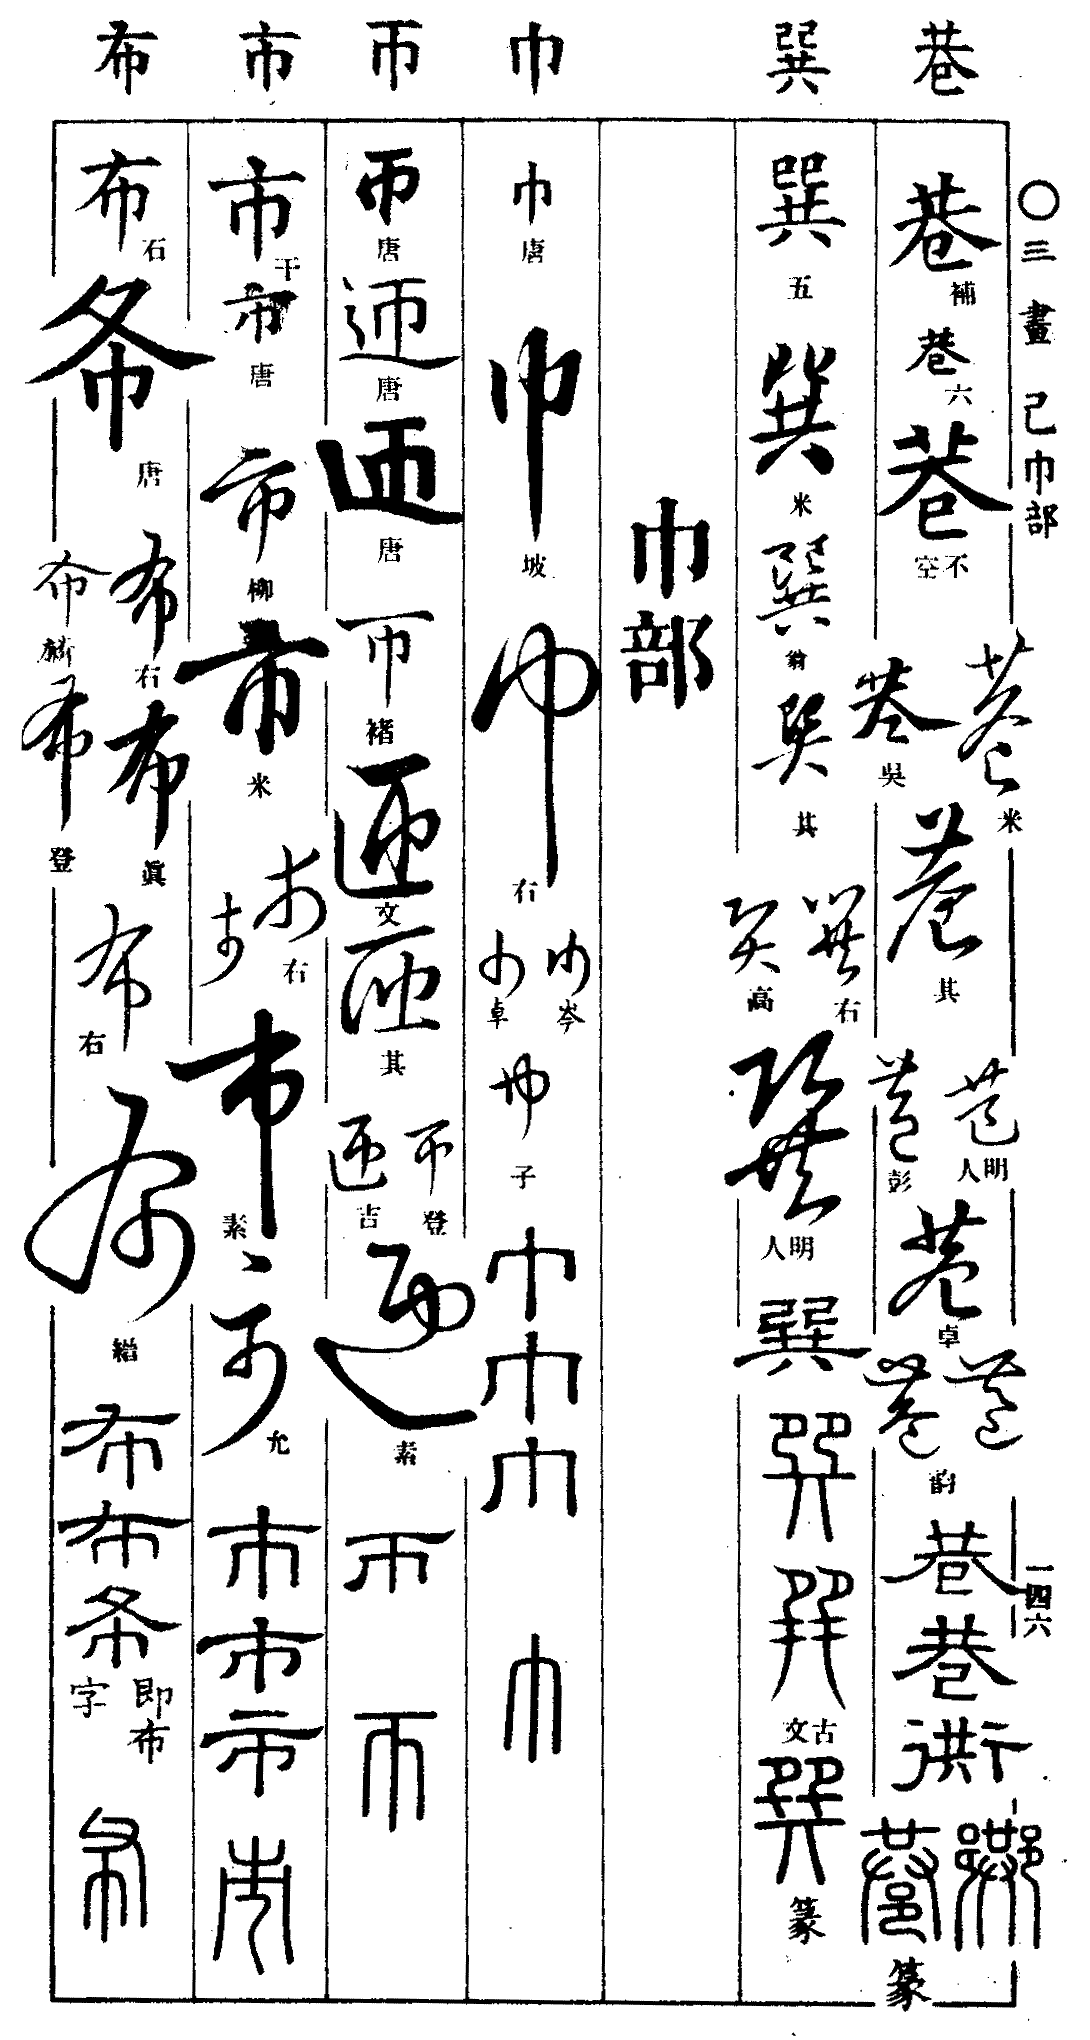 巷 巽 巾 帀 市 布
〇三畫 己巾部 一四六
巷 補
巷 六
巷 不空
巷 米
巷 吳
巷 其
巷 明人
巷 彭
巷 卓
巷 巷 韵
巷
巷
衖
篆
巽 五
巽 米
巽 翁
巽 其
巽 右
巽 高
巽 明人
巽
巽
巽 古文
巽 篆
巾部
巾 唐
巾 坡
巾 右
巾 岑
巾 卓
巾 子
巾
巾
巾
巾
帀 唐
迊 唐
迊 唐
帀 褚
迊 文
迊 其
帀 登
迊 吉
迊 素
帀
帀
市 干
市 唐
市 柳
市 米
市 市 右
市 素
市 允
市
市
市
市
布 石
布 唐
布 右
布 麻
布 眞
布 登
布 右
布
布
布
布 即布字
布